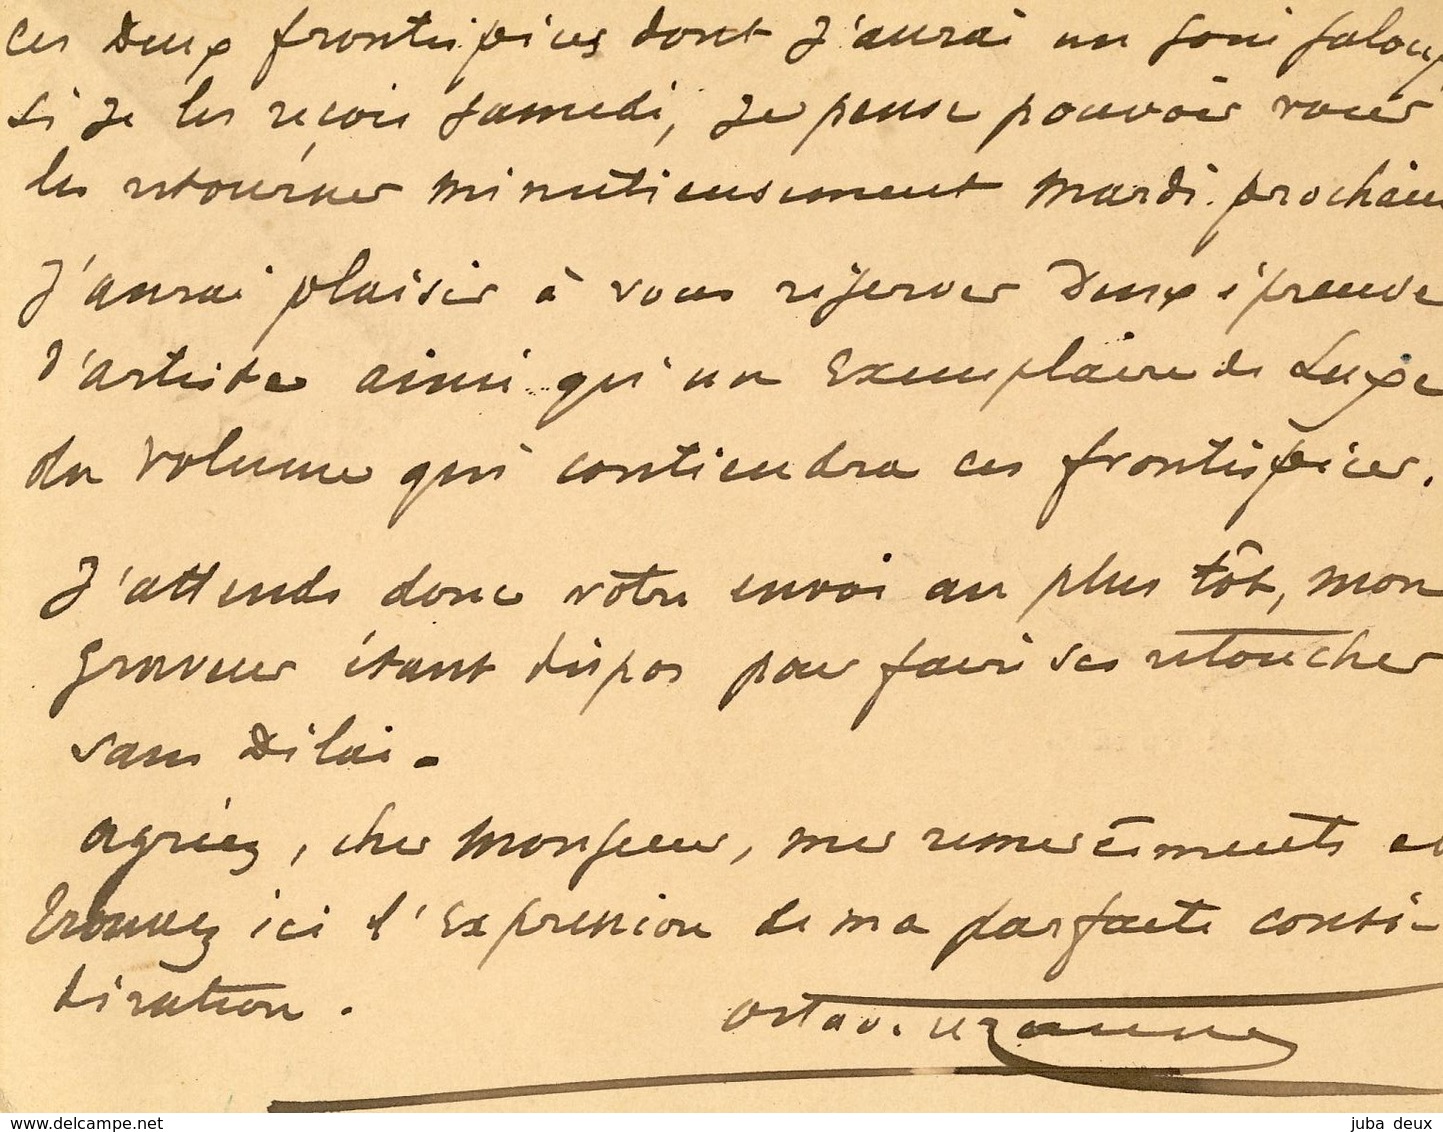 ces deux frontispices dont j'aurai un soin jaloux
si je les reçois samedi, je pense pouvoir vous
les retourner minutieusement mardi prochain
J'aurai plaisir à vous réserver deux épreuves
d'artiste ainsi qu'un Exemplaire de Luxe
du volume qui contiendra ces frontispices.
J'attends donc votre envoi au plus tôt, mon
graveur étant dispos pour faire ses retouches
sans délai.
Agréez, cher Monsieur, mes remerciments et
trouvez ici l'Expression de ma parfaite consi-
dération.
Octave Uzanne
www.delcampe.net
juba deux